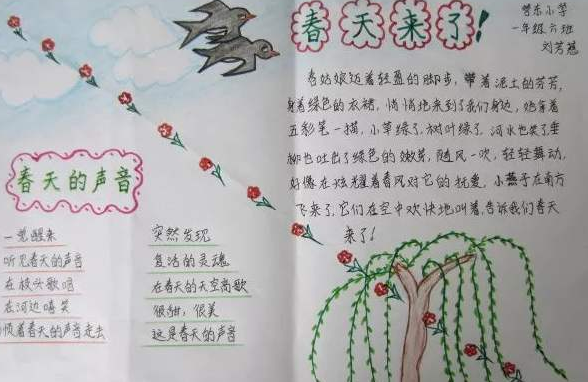 春天来了!
学东小学
一年级六班
春姑娘迈着轻盈的脚步,带着泥土的芬芳,
身着绿色的衣裙,悄悄地来到了我们身边,她拿着
五彩笔一描,小草绿了,树叶绿了,河水也笑了,垂
柳也吐出了绿色的嫩芽,随风一吹,轻轻舞动,
好像在炫耀着春风对它的抚爱,小燕子在南方
飞来了,它们在空中欢快地叫着,告诉我们春天
来了!
春天的声音
一觉醒来
听见春天的声音
在枝头歌唱
在河边嘻笑
顺着春天的声音走去
突然发现
复活的灵魂
在春天的天空高歌
很甜,很美
这是春天的声音